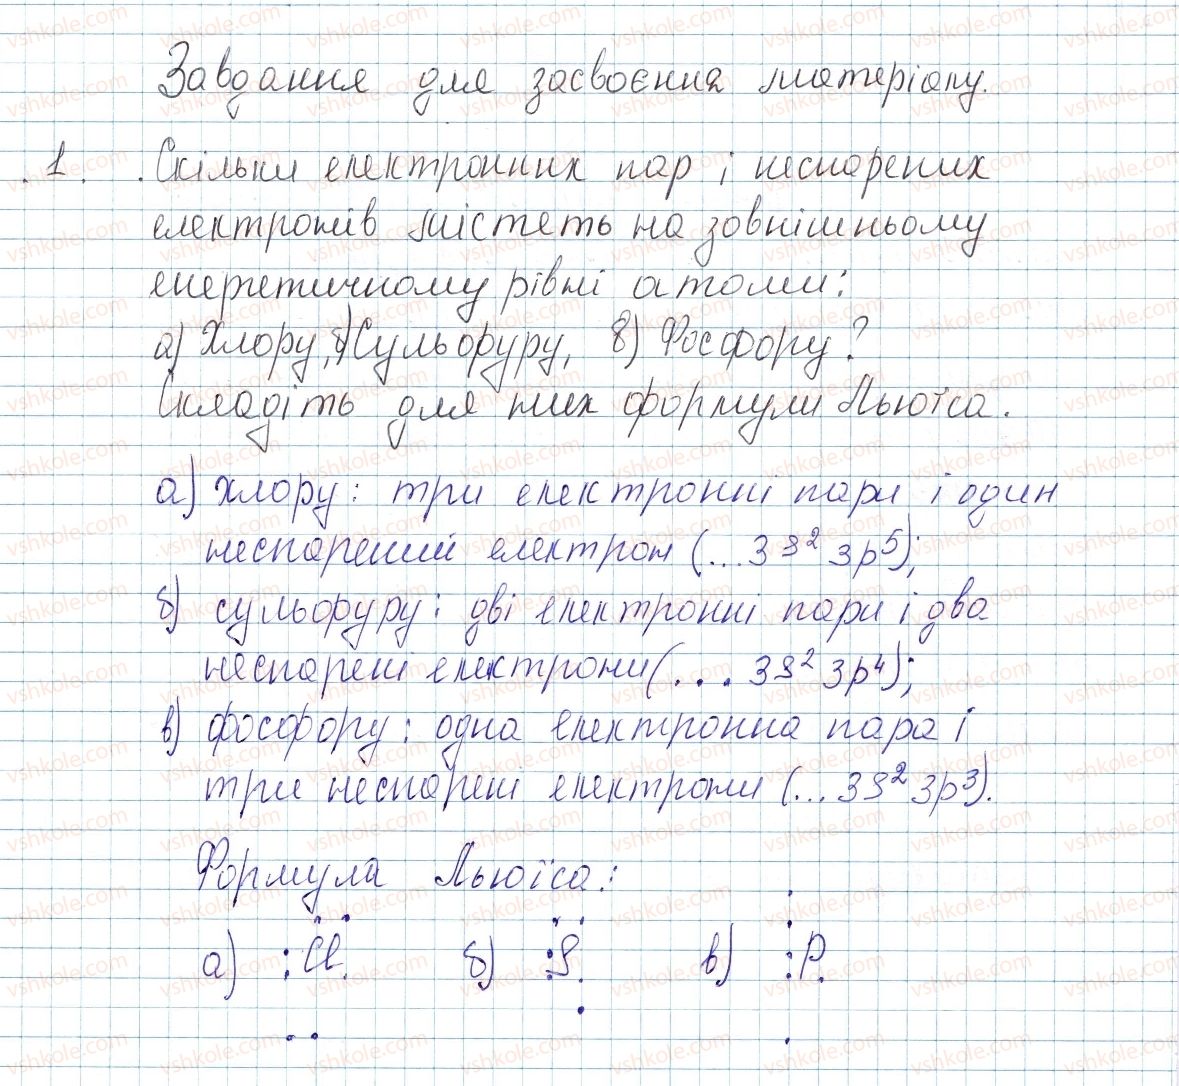 Завдання для засвоєння матеріалу.
1. Скільки електронних пар і неспарених
електронів містеть на зовнішньому
енергетичному рівні атоми:
а) Хлору, б) Сульфуру, в) Фосфору?
Складіть для них формули Льюїса.
а) хлору: три електронні пари і один
неспарений електрон (...3s² 3p⁵);
б) сульфуру: дві електронні пари і два
неспарені електрони (... 3s² 3p⁴);
в) фосфору: одна електронна пара і
три неспарені електрони (...3s² 3p³).
Формула Льюїса:
а) :Cl. б) :S. в) :P.
vshkole.com